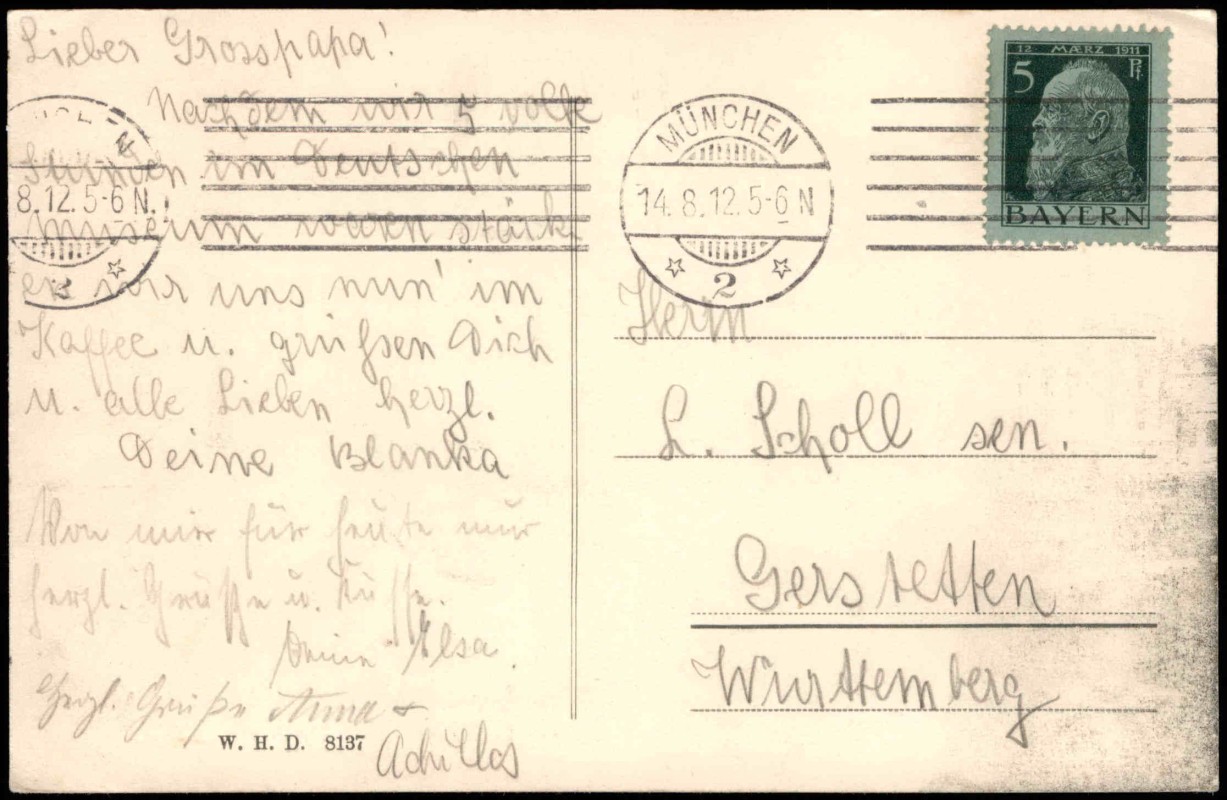 Lieber Grosspapa!
Nachdem wir 5 volle
Stunden im Deutschen
Museum waren stärk
en wir uns nun im
Kaffee u. grüßen Dich
u. alle Lieben herzl.
Deine Blanka
Von mir für heute nur
herzl. Grüße u. Küsse.
Deine Elsa.
Herzl. Grüße Anna +
Achilles
W. H. D. 8137
8.12.5-6 N.
2
MÜNCHEN
14.8.12.5-6 N
2
12 MÆRZ 1911
5 Pf.
BAYERN
Herrn
L. Scholl sen.
Gerstetten
Württemberg